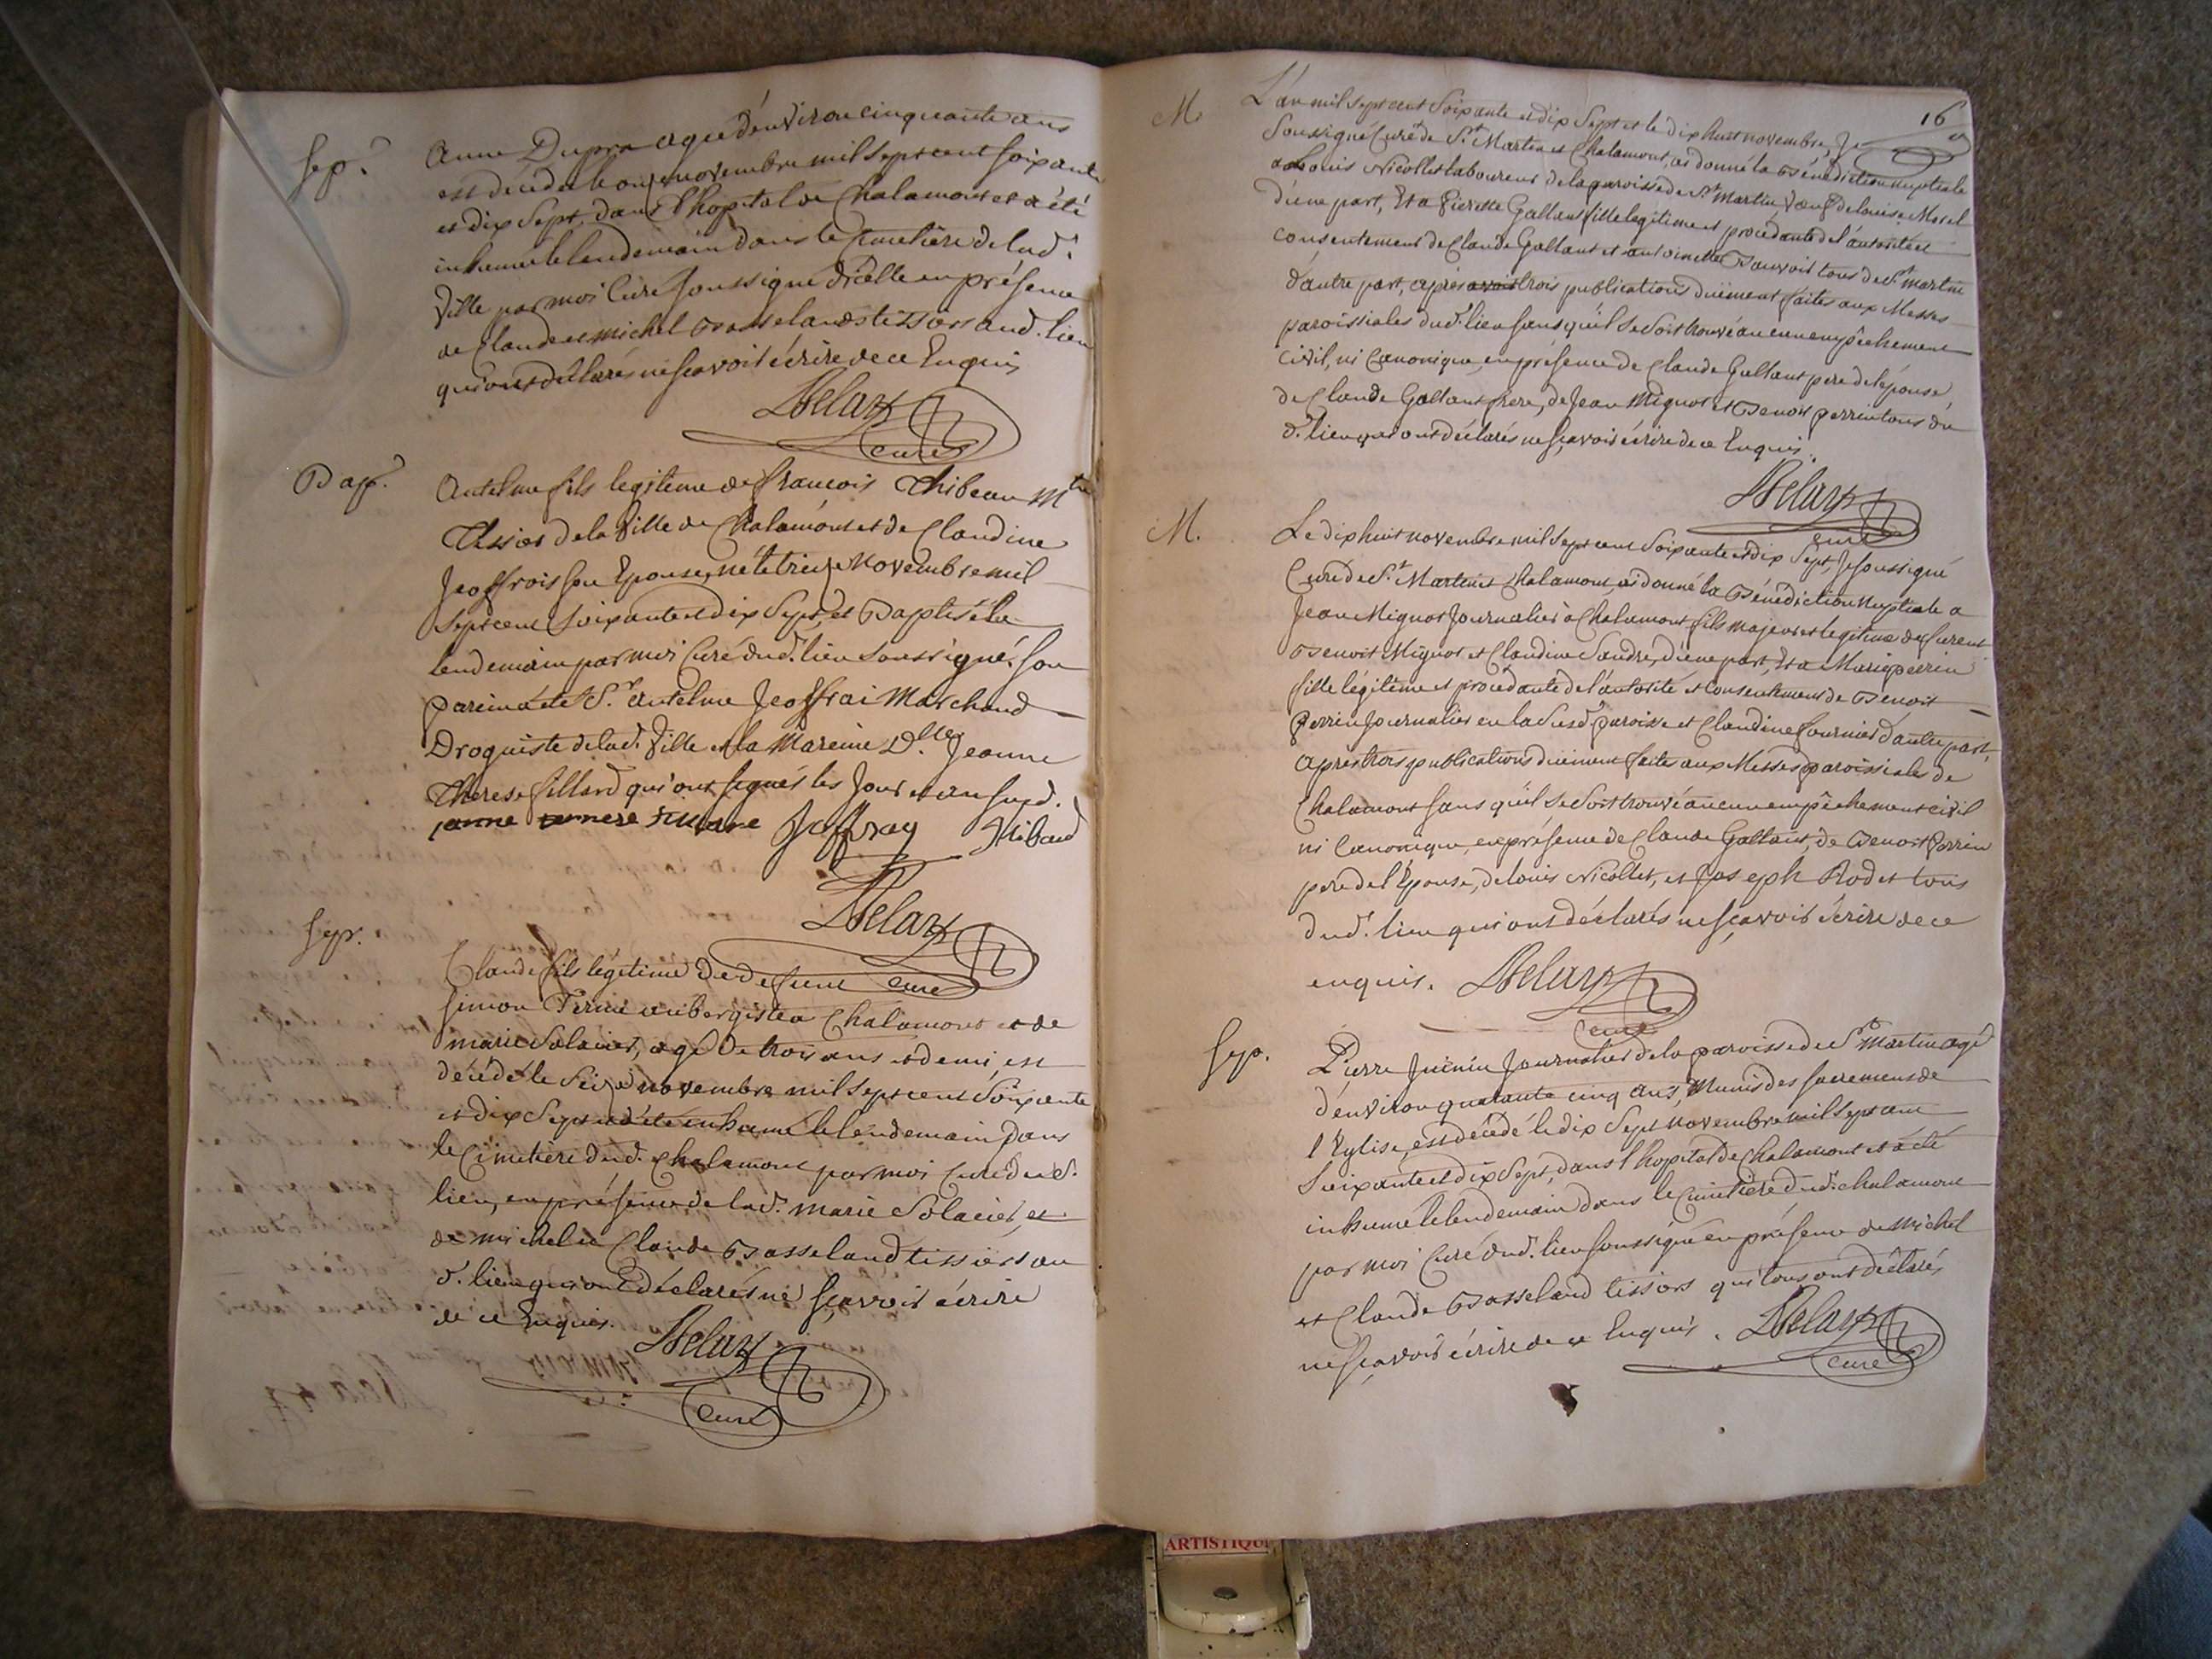 Sep.re
Anne Dupra agée d'environ cinquante ans
est décédée le onze novembre mil sept cent soixante
et dix Sept, dans l'hopital de Chalamont et a été
inhumée le lendemain dans le Cimetière de lad.
Ville par moi Curé soussigné d'icelle en présence
de Claude et michel Basseland tissiers aud. lieu
qui ont déclarés ne sçavoir écrire de ce Enquis
Delaz
curé
Bap.
Antelme fils legitime de francois Thibeau M.tre
Tissier de la Ville de Chalamont et de Claudine
Jeoffrois son Epouse, né le treize Novembre mil
Sept cent Soixante et dix Sept, et Baptisé le
lendemain par moi Curé dud. lieu soussigné. Son
parein a été S.r antelme Jeoffrai Marchand
Droguiste de lad. Ville et la Mareine D.lle Jeanne
Therese fillard qui ont signés les Jour et an susd.
janne fillard Joffray Thibaud
Delaz
curé
Sep.
Claude fils légitime de defunt
simon aubergiste a Chalamont et de
marie Solacier, agé de trois ans et demi, est
décédé le Seize novembre mil sept cent Soixante
et dix Sept a été inhumé le lendemain dans
le Cimetière dud. Chalamont par moi Curé dud.
lieu, en présence de lad. marie Solacier, et
de michel et Claude Basseland tissiers au
d. lieu qui ont déclarés ne sçavoir écrire
de ce Enquis.
Delaz
curé
16
M.
L'an mil sept cent Soixante et dix Sept et le dix huit novembre, Je
Soussigné Curé de S.t Martin et Chalamont, ai donné la Bénédiction nuptiale
a Louis Nicollet laboureur de la paroisse de S.t Martin, Veuf de louise Morel
d'une part, Et a Pierrette Galland fille legitime et procédante de l'autorité et
consentement de Claude Galland et antoinette tous de S.t martin
d'autre part, après avoir trois publications duëment faites aux Messes
paroissiales dud. lieu sans qu'il se soit trouvé aucun empêchement
civil, ni Canonique, en présence de Claude Galland pere de l'épouse,
de Claude Galland frere, de Jean Mignot et Benoit perrin tous du
d. lieu qui ont déclarés ne sçavoir écrire de ce Enquis.
Delaz
curé
M.
Le dix huit novembre mil sept cent Soixante et dix Sept, Je soussigné
Curé de S.t Martin et Chalamont, ai donné la Bénédiction Nuptiale a
Jean Mignot Journalier à Chalamont fils majeur et legitime de furent
Benoit Mignot et Claudine Sandre, d'une part, Et a Marie perrin
fille légitime et procédante de l'autorité et Consentement de Benoit
perrin Journalier en la susd. paroisse et Claudine fournier d'autre part,
après trois publications duëment faites aux Messes paroissiales de
Chalamont sans qu'il se soit trouvé aucun empêchement civil
ni Canonique, en présence de Claude Galland, de Benoit perrin
pere de l'Epouse, de louis Nicollet, et Joseph Rodet tous
dud. lieu qui ont déclarés ne sçavoir écrire de ce
enquis.
Delaz
curé
Sep.
Pierre Juenin Journalier de la paroisse de S.t Martin agé
d'environ quarante cinq ans, Munis des sacremens de
l'Eglise, est décédé le dix Sept novembre mil sept cent
Soixante et dix Sept, dans l'hopital de Chalamont et a été
inhumé le lendemain dans le Cimetière dud. chalamont
par moi Curé dud. lieu soussigné en présence de Michel
et Claude Basseland tissiers qui tous ont déclarés
ne sçavoir écrire de ce Enquis.
Delaz
curé
ARTISTIQU